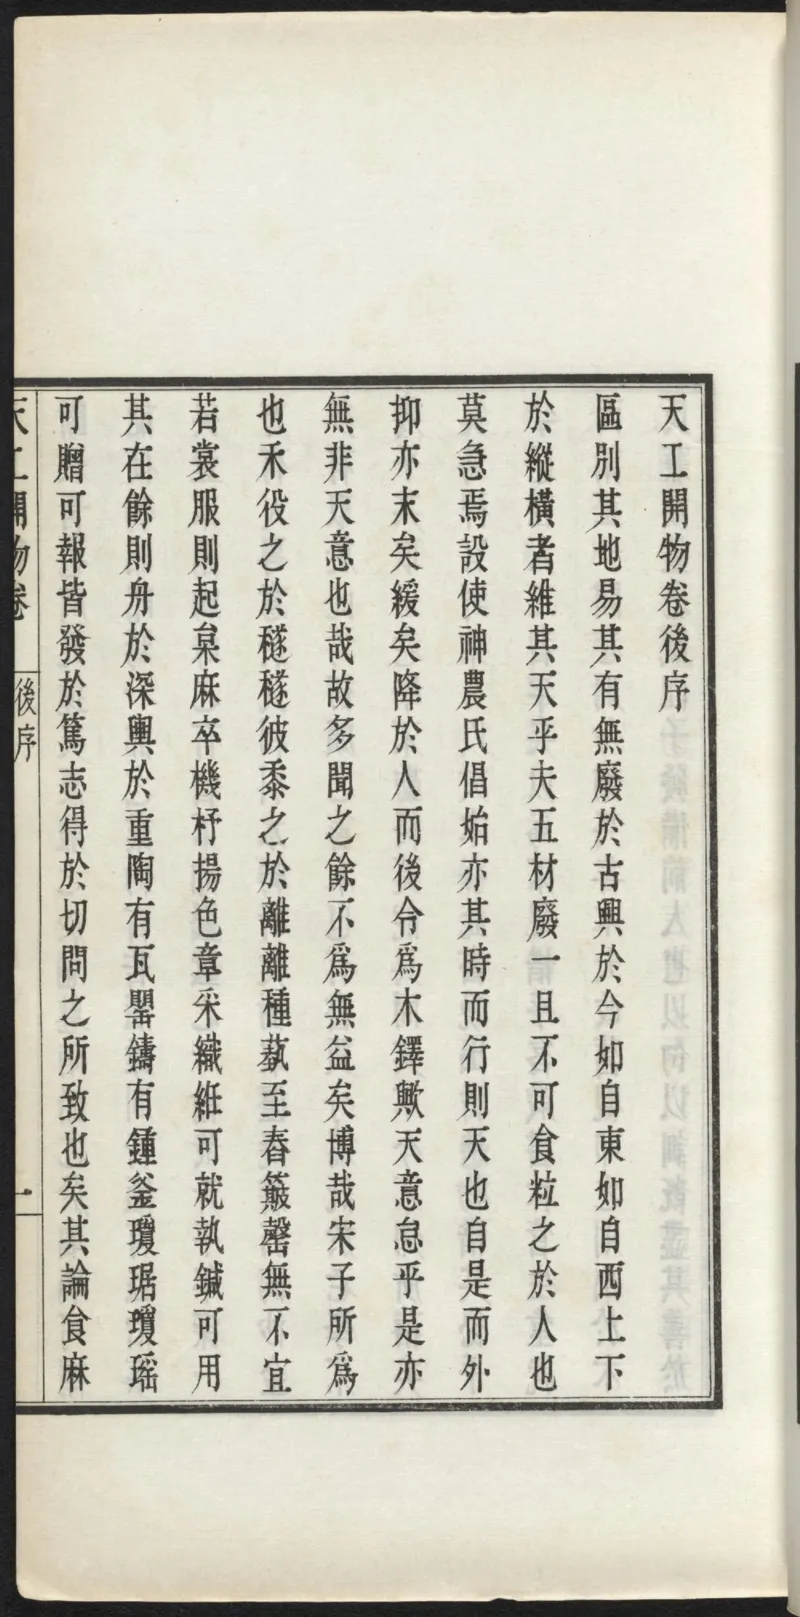 天工開物卷後序
區別其地易其有無廢於古興於今如自東如自西上下
於縱橫者維其天乎夫五材廢一且不可食粒之於人也
莫急焉設使神農氏倡始亦其時而行則天也自是而外
抑亦末矣緩矣降於人而後令爲木鐸歟天意怠乎是亦
無非天意也哉故多聞之餘不爲無益矣博哉宋子所爲
也禾役之於穟穟彼黍之於離離種蓺至舂簸罄無不宜
若裳服則起枲麻卒機杼揚色章采織絍可就執鍼可用
其在餘則舟於深輿於重陶有瓦罌鑄有鍾釜瓊琚瓊瑶
可贈可報皆發於篤志得於切問之所致也矣其論食麻
天工開物卷
後序
一